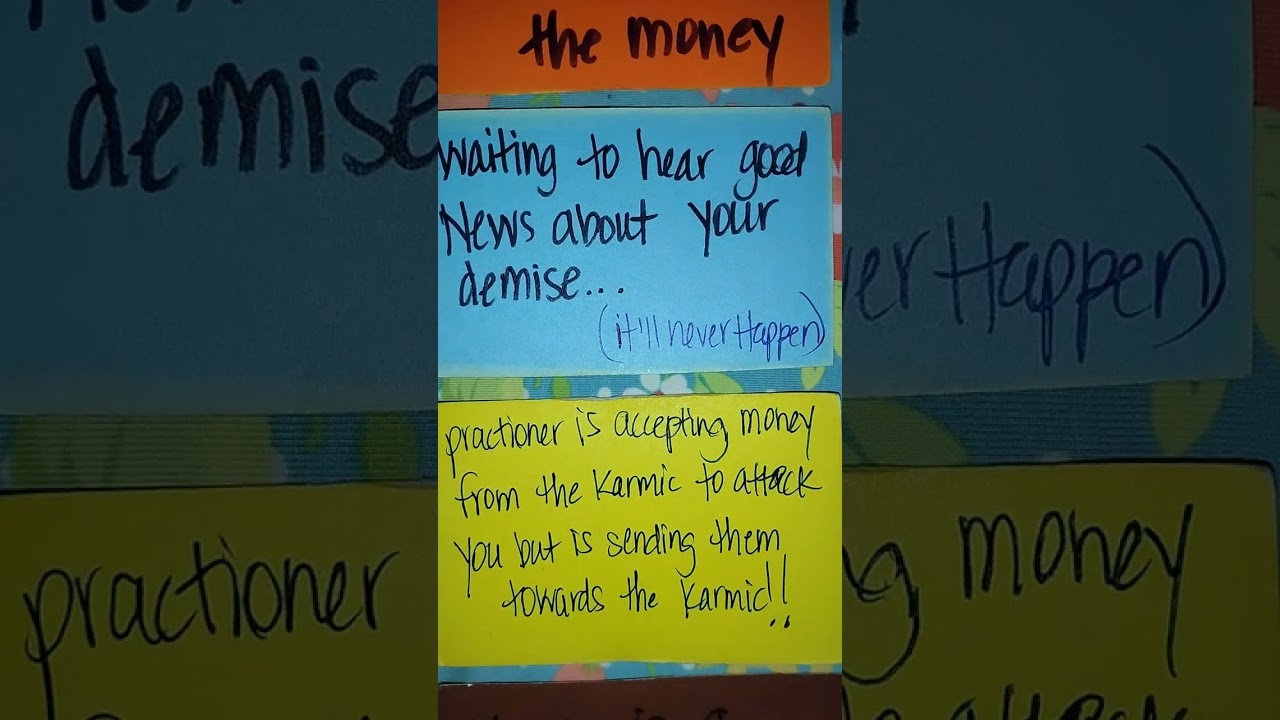 the money
waiting to hear good
News about your
demise...
(it'll never Happen)
practioner is accepting money
from the Karmic to attack
you but is sending them
towards the Karmic!!
demise
ver Happen)
practioner
g money